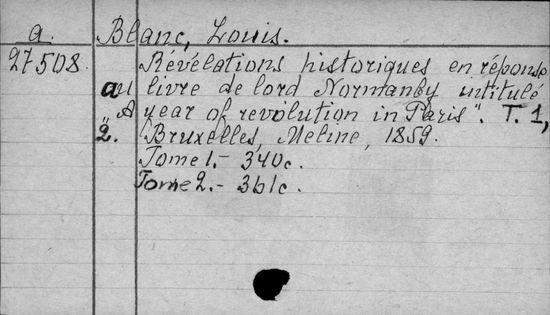 a. Blanc, Louis.
27508. Révélations historiques en réponse
au livre de lord Normanby intitulé
„A year of revolution in Paris“. T. 1,
2. Bruxelles, Meline, 1859.
Tome 1.- 340c.
Tome 2.- 361c.